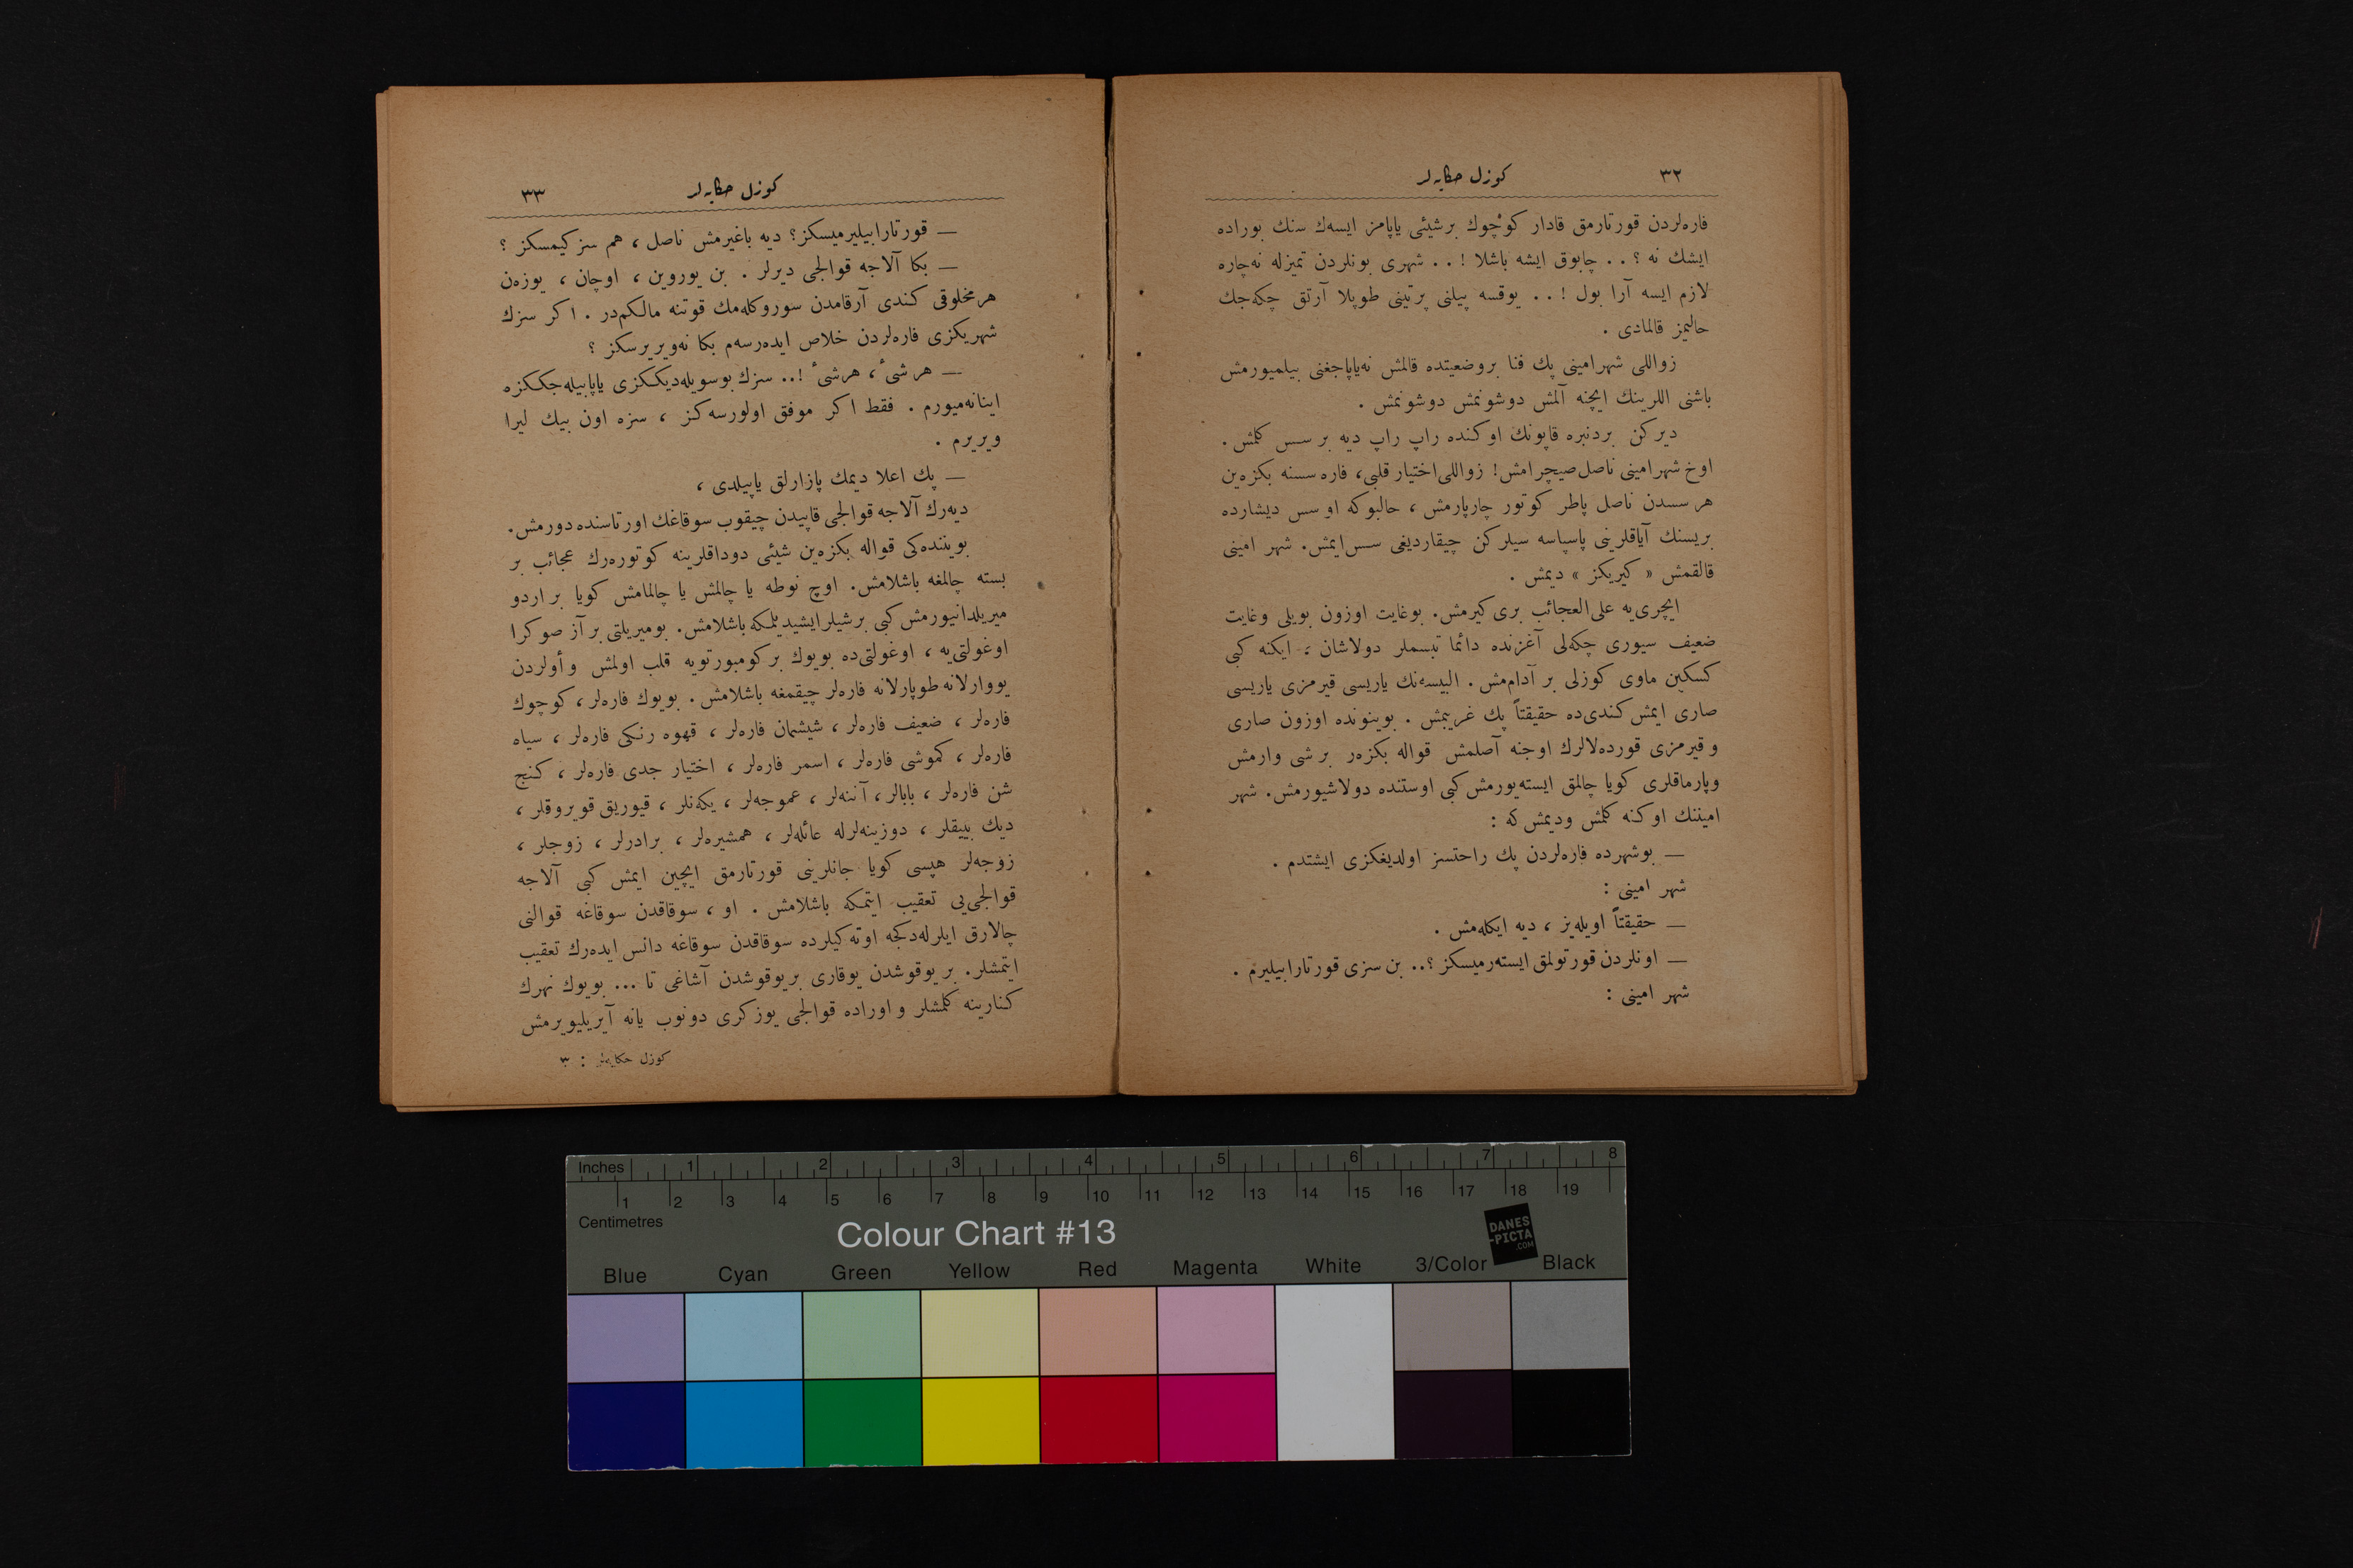 ٣٢
كوزل حكايه‌لر
فاره‌لردن قورتارمق قادار كوچوك برشيئى ياپامز ايسه‌ك سنك بوراده
ايشك نه ؟ . . چابوق ايشه باشلا ! . . شهرى بونلردن تميزله نه‌چاره
لازم ايسه آرا بول ! . . يوقسه پيلنى پرتينى طوپلا آرتق چكه‌جك
حاليمز قالمادى .
زواللى شهرامينى پك فنا بروضعيتده قالمش نه‌ياپاجغنى بيلميورمش
باشنى اللرينك ايچنه آلمش دوشونمش دوشونمش .
ديركن بردنبره قاپونك اوكنده راپ راپ ديه بر سس كلمش .
اوخ شهرامينى ناصل صيچرامش! زواللى اختيار قلبى، فاره سسنه بكزه‌ين
هر سسدن ناصل پاطر كوتور چارپارمش ، حالبوكه او سس ديشارده
بريسنك آياقلرينى پاسپاسه سيلركن چيقارديغى سس‌ايمش. شهر امينى
قالقمش « كيريكز » ديمش .
ايچرى‌يه على‌العجائب برى كيرمش. بوغايت اوزون بويلى وغايت
ضعيف سيورى چكه‌لى آغزنده دائما تبسملر دولاشان ، ايكنه كبى
كسكين ماوى كوزلى بر آدام‌مش . البسه‌نك ياريسى قيرمزى ياريسى
صارى ايمش كندى‌ده حقيقتاً پك غريبمش . بوينونده اوزون صارى
و قيرمزى قورده‌لالرك اوجنه آصلمش قواله بكزه‌ر بر شى وارمش
وپارماقلرى كويا چالمق ايسته‌يورمش كبى اوستنده دولاشيورمش. شهر
امينك اوكنه كلمش وديمش كه :
— بوشهرده فاره‌لردن پك راحتسز اولديغكزى ايشتدم .
شهر امينى :
— حقيقتاً اويله‌يز ، ديه ايكله‌مش .
— اونلردن قورتولمق ايسته‌رميسكز ؟.. بن سزى قورتارابيليرم .
شهر امينى :
كوزل حكايه‌لر
٣٣
— قورتارابيليرميسكز؟ ديه باغيرمش ناصل ، هم سز كيمسكز ؟
— بكا آلاجه قوالجى ديرلر . بن يوروين ، اوچان ، يوزه‌ن
هرمخلوقى كندى آرقامدن سوروكله‌مك قوتنه مالكم‌در . اكر سزك
شهريكزى فاره‌لردن خلاص ايده‌رسه‌م بكا نه‌ويريرسكز ؟
— هر شىٔ ، هرشىٔ !.. سزك بوسويله‌ديككزى ياپابيله‌جككزه
اينانه‌ميورم . فقط اكر موفق اولورسه‌كز ، سزه اون بيك ليرا
ويريرم .
— پك اعلا ديمك پازارلق ياپيلدى ،
ديه‌رك آلاجه قوالجى قاپيدن چيقوب سوقاغك اورتاسنده دورمش.
بويننده‌كى قواله بكزه‌ين شيئى دوداقلرينه كوتوره‌رك عجائب بر
بسته چالمغه باشلامش. اوچ نوطه يا چالمش يا چالمامش كويا بر اردو
ميريلدانيورمش كبى برشيلر ايشيديلمكه باشلامش. بوميريلتى بر آز صوكرا
اوغولتى‌يه ، اوغولتى‌ده بويوك بر كومبورتويه قلب اولمش و أولردن
يووارلانه طوپارلانه فاره‌لر چيقمغه باشلامش . بويوك فاره‌لر ، كوچوك
فاره‌لر ، ضعيف فاره‌لر ، شيشمان فاره‌لر ، قهوه رنكى فاره‌لر ، سياه
فاره‌لر ، كموشى فاره‌لر ، اسمر فاره‌لر ، اختيار جدى فاره‌لر ، كنج
شن فاره‌لر ، بابالر ، آننه‌لر ، عموجه‌لر ، يكه‌نلر ، قيوريق قويروقلر ،
ديك بييقلر ، دوزينه‌لرله عائله‌لر ، همشيره‌لر ، برادرلر ، زوجلر ،
زوجه‌لر هپسى كويا جانلرينى قورتارمق ايچين ايمش كبى آلاجه
قوالجى‌يى تعقيب ايتمكه باشلامش . او ، سوقاقدن سوقاغه قوالنى
چالارق ايلرله‌دكجه اوته‌كيلرده سوقاقدن سوقاغه دانس ايده‌رك تعقيب
ايتمشلر. بر يوقوشدن يوقارى بريوقوشدن آشاغى تا ... بويوك نهرك
كنارينه كلمشلر و اوراده قوالجى يوز كرى دونوب يانه آيريليويرمش
كوزل حكايه‌لر : ٣
Inches 1 2 3 4 5 6 7 8
1 2 3 4 5 6 7 8 9 10 11 12 13 14 15 16 17 18 19
Centimetres
Colour Chart #13
DANES
-PICTA
.COM
Blue Cyan Green Yellow Red Magenta White 3/Color Black